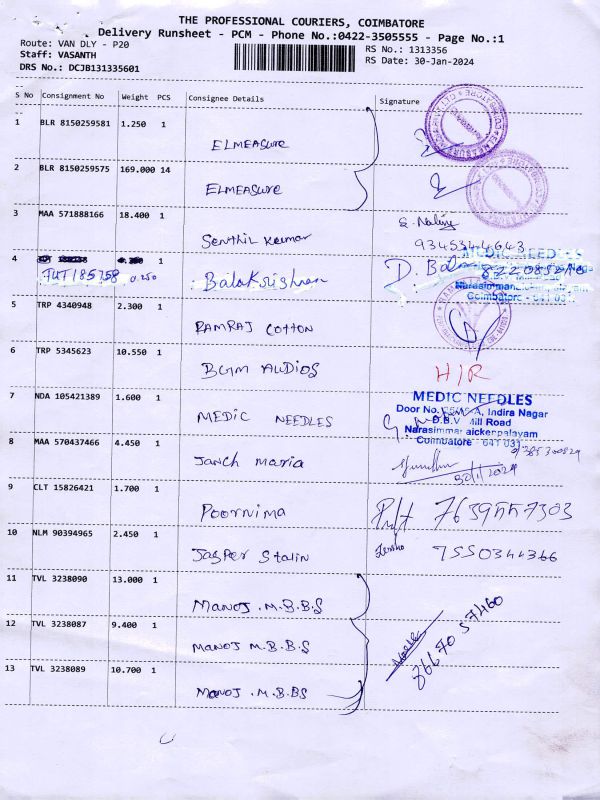 THE PROFESSIONAL COURIERS, COIMBATORE
Delivery Runsheet - PCM - Phone No.:0422-3505555 - Page No.:1
Route: VAN DLY - P20
RS No.: 1313356
Staff: VASANTH
RS Date: 30-Jan-2024
DRS No.: DCJB131335601
S No Consignment No Weight PCS Consignee Details Signature
1 BLR 8150259581 1.250 1 ELMEASURE
2 BLR 8150259575 169.000 14 ELMEASURE
3 MAA 571888166 18.400 1 Senthil Kumar
9345344643
4 1
TUT185758 0.250 BalaKrishnan D. Bala
MEDIC NEEDLES
Narasimmanaickenpalayam
Coimbatore - 641 031
5 TRP 4340948 2.300 1 RAMRAJ COTTON
6 TRP 5345623 10.550 1 BGM AUDIOS H/R
7 NDA 105421389 1.600 1 MEDIC NEEDLES
MEDIC NEEDLES
Door No. A, Indira Nagar
Mill Road
Narasimmanaickenpalayam
Coimbatore - 641 031
8 MAA 570437466 4.450 1 Janch Maria
30/1/2024
9 CLT 15826421 1.700 1 Poornima 7639557303
10 NLM 90394965 2.450 1 Jasper Stalin 7550344366
11 TVL 3238090 13.000 1 Manoj .M.B.B.S
12 TVL 3238087 9.400 1 Manoj M.B.B.S
86670 57460
13 TVL 3238089 10.700 1 Manoj .M.BBS